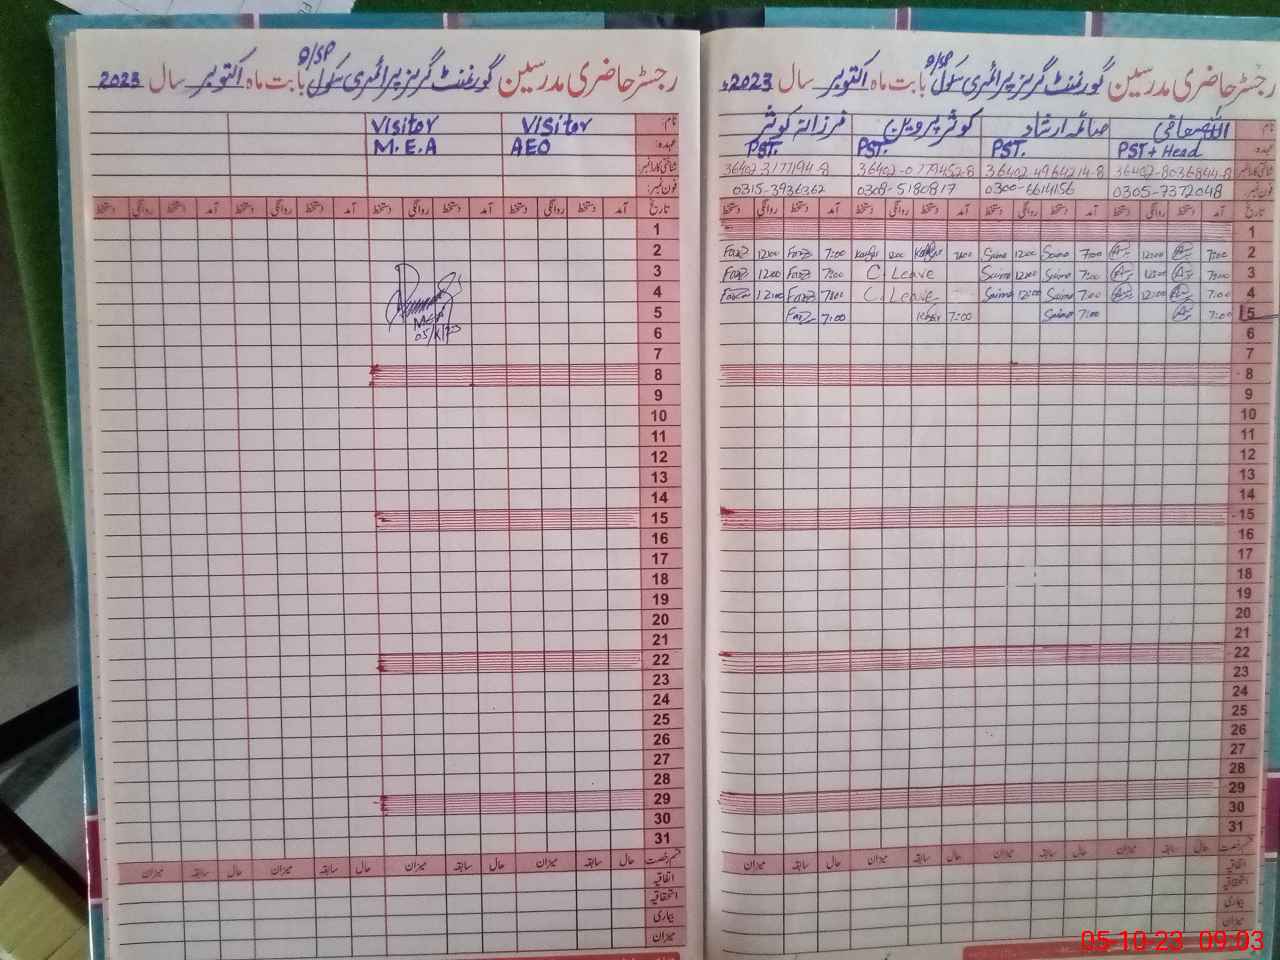 رجسٹر حاضری مدرسین گورنمنٹ گرلز پرائمری سکول بابت ماہ اکتوبر سال 2023
D/SP
نام:
عہدہ:
شناختی کارڈ نمبر
فون نمبر:
کوثر پروین
فرزانہ کوثر
PST + Head
PST.
PST.
PST.
36402-8036844-8
36402-4964214-8
36402-0779452-8
36402-3177194-8
0305-7372048
0300-6614156
0308-5180817
0315-3936362
تاریخ آمد دستخط روانگی دستخط آمد دستخط روانگی دستخط آمد دستخط روانگی دستخط آمد دستخط روانگی دستخط
1
2 7:00 12:00 7:00 Saima 12:00 Saima 7:00 12:00 7:00 12:00
3 7:00 12:00 7:00 Saima 12:00 Saima C. Leave 7:00 12:00
4 7:00 12:00 7:00 Saima 12:00 Saima C. Leave 7:00 12:00
5 7:00 7:00 Saima 7:00 7:00
6
7
8
9
10
11
12
13
14
15
16
17
18
19
20
21
22
23
24
25
26
27
28
29
30
31
قسم رخصت حال سابقہ میزان حال سابقہ میزان حال سابقہ میزان حال سابقہ میزان
اتفاقیہ
استحقاقیہ
بیماری
میزان
رجسٹر حاضری مدرسین گورنمنٹ گرلز پرائمری سکول بابت ماہ اکتوبر سال 2023
D/SP
نام:
عہدہ:
شناختی کارڈ نمبر
فون نمبر:
Visitor
Visitor
AEO
M.E.A
تاریخ آمد دستخط روانگی دستخط آمد دستخط روانگی دستخط آمد دستخط روانگی دستخط آمد دستخط روانگی دستخط
1
2
3
4
5
MEA
05/X/23
6
7
8
9
10
11
12
13
14
15
16
17
18
19
20
21
22
23
24
25
26
27
28
29
30
31
قسم رخصت حال سابقہ میزان حال سابقہ میزان حال سابقہ میزان حال سابقہ میزان
اتفاقیہ
استحقاقیہ
بیماری
میزان
05-10-23 09:03